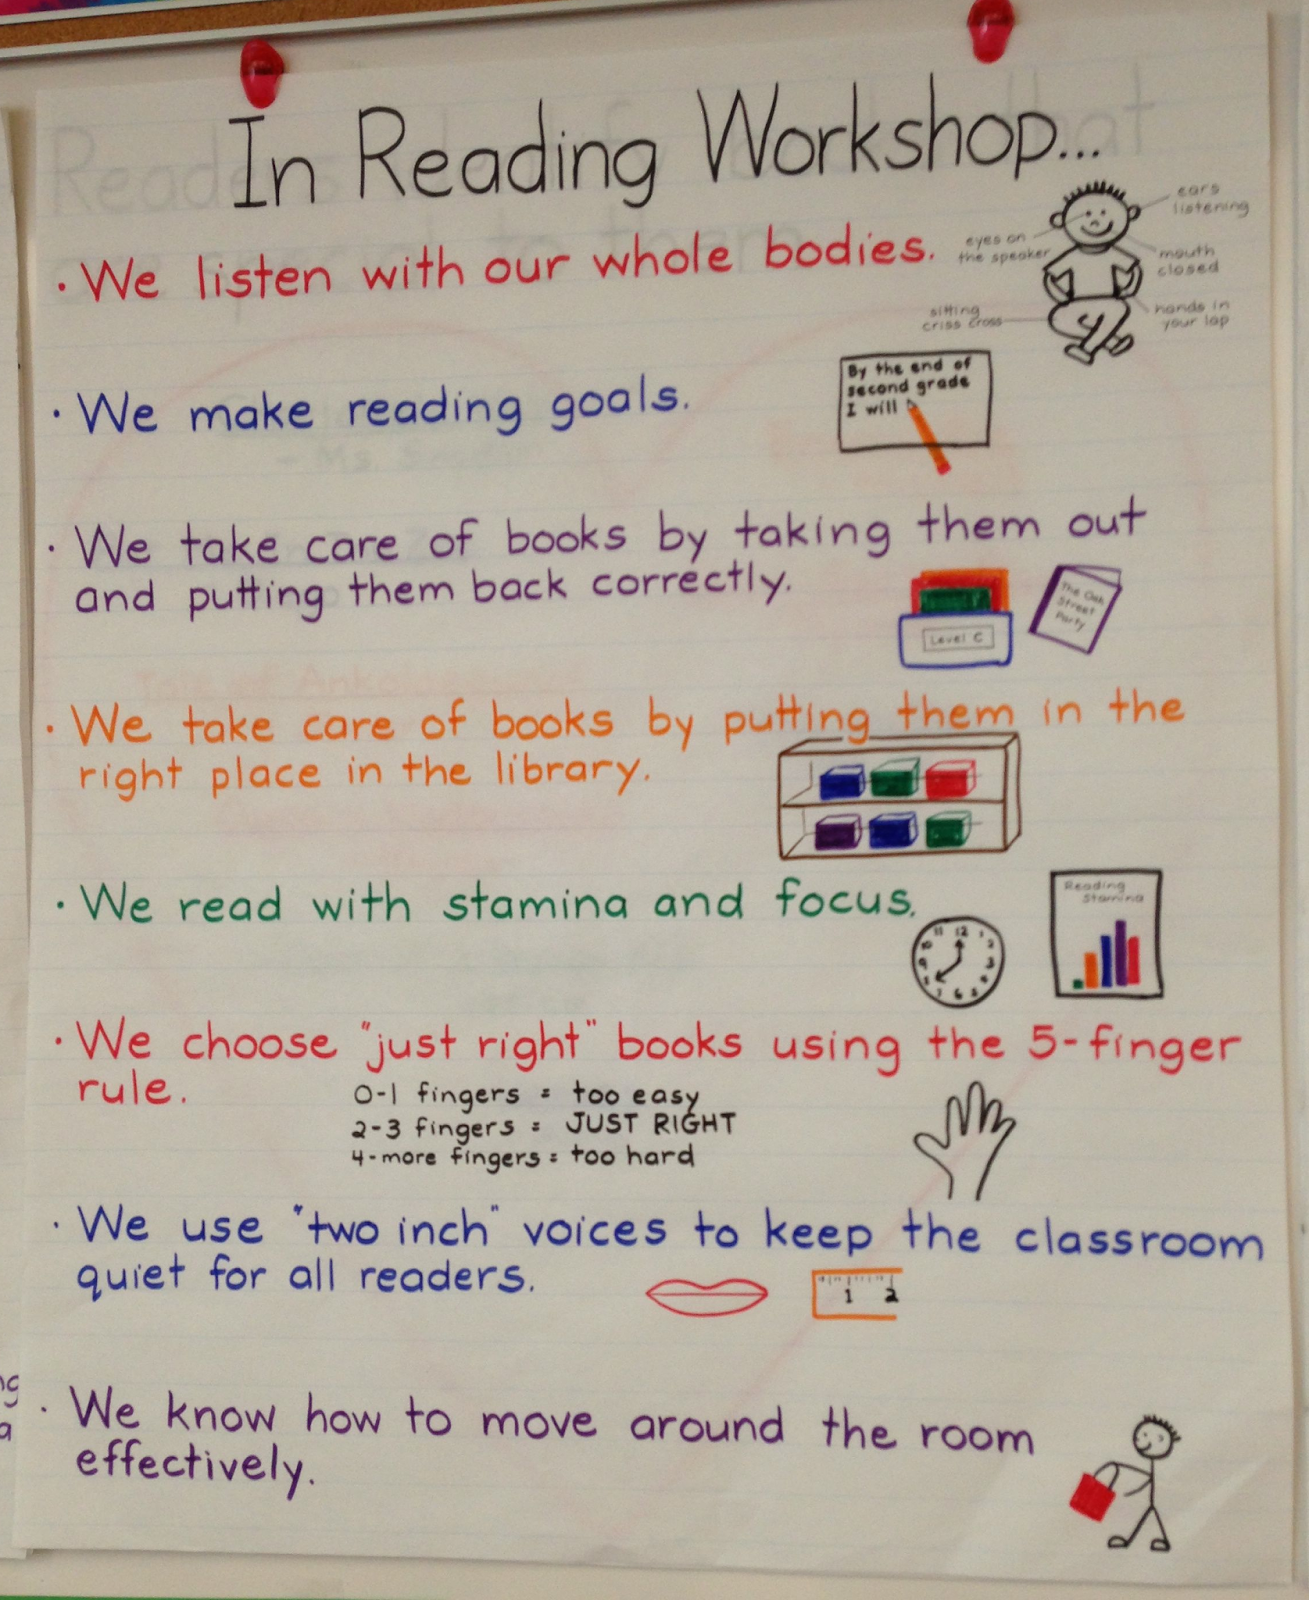 In Reading Workshop...
· We listen with our whole bodies.
ears
listening
eyes on
the speaker
mouth
closed
sitting
criss cross
hands in
your lap
· We make reading goals.
By the end of
second grade
I will
· We take care of books by taking them out
and putting them back correctly.
Level C
The Oak
Street
Party
· We take care of books by putting them in the
right place in the library.
· We read with stamina and focus.
11 12 1
10 2
9 3
8 4
7 6 5
Reading
Stamina
· We choose "just right" books using the 5-finger
rule.
0-1 fingers = too easy
2-3 fingers = JUST RIGHT
4-more fingers = too hard
· We use "two inch" voices to keep the classroom
quiet for all readers.
1 2
· We know how to move around the room
effectively.